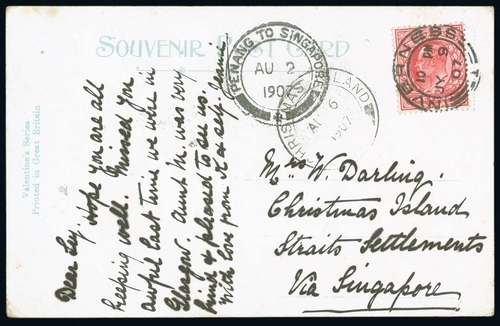 SOUVENIR POST CARD
Valentine's Series
Printed in Great Britain
Dear Ley. Hope you are all
keeping well. Missed you
awful last time we were in
Glasgow. Aunt W. was very
kind & pleased to see us.
With love from
PENANG TO SINGAPORE
AU 2
1907
CHRISTMAS ISLAND
AU 6
1907
INVERNESS
Mrs W. Darling.
Christmas Island
Straits Settlements
Via Singapore